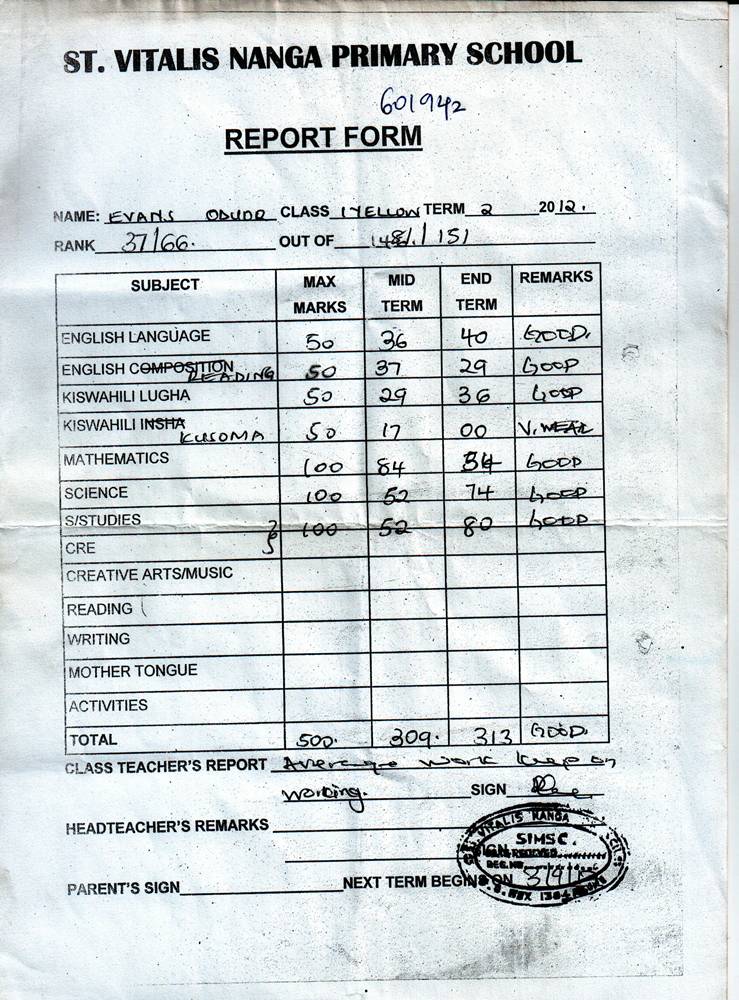 ST. VITALIS NANGA PRIMARY SCHOOL
601942
REPORT FORM
NAME: EVANS ODUOR CLASS 1 YELLOW TERM 2 2012.
RANK 37/66. OUT OF 151
SUBJECT MAX MARKS MID TERM END TERM REMARKS
ENGLISH LANGUAGE 50 36 40 GOOD.
ENGLISH COMPOSITION READING 50 37 29 GOOD
KISWAHILI LUGHA 50 29 36 GOOD
KISWAHILI INSHA KUSOMA 50 17 00 V. WEAK
MATHEMATICS 100 84 54 GOOD
SCIENCE 100 52 74 GOOD
S/STUDIES 100 52 80 GOOD
CRE
CREATIVE ARTS/MUSIC
READING
WRITING
MOTHER TONGUE
ACTIVITIES
TOTAL 500. 309. 313 GOOD.
CLASS TEACHER'S REPORT Average work keep on
working. SIGN
HEADTEACHER'S REMARKS
VITALIS NANGA
SIMSC.
PARENT'S SIGN NEXT TERM BEGINS ON